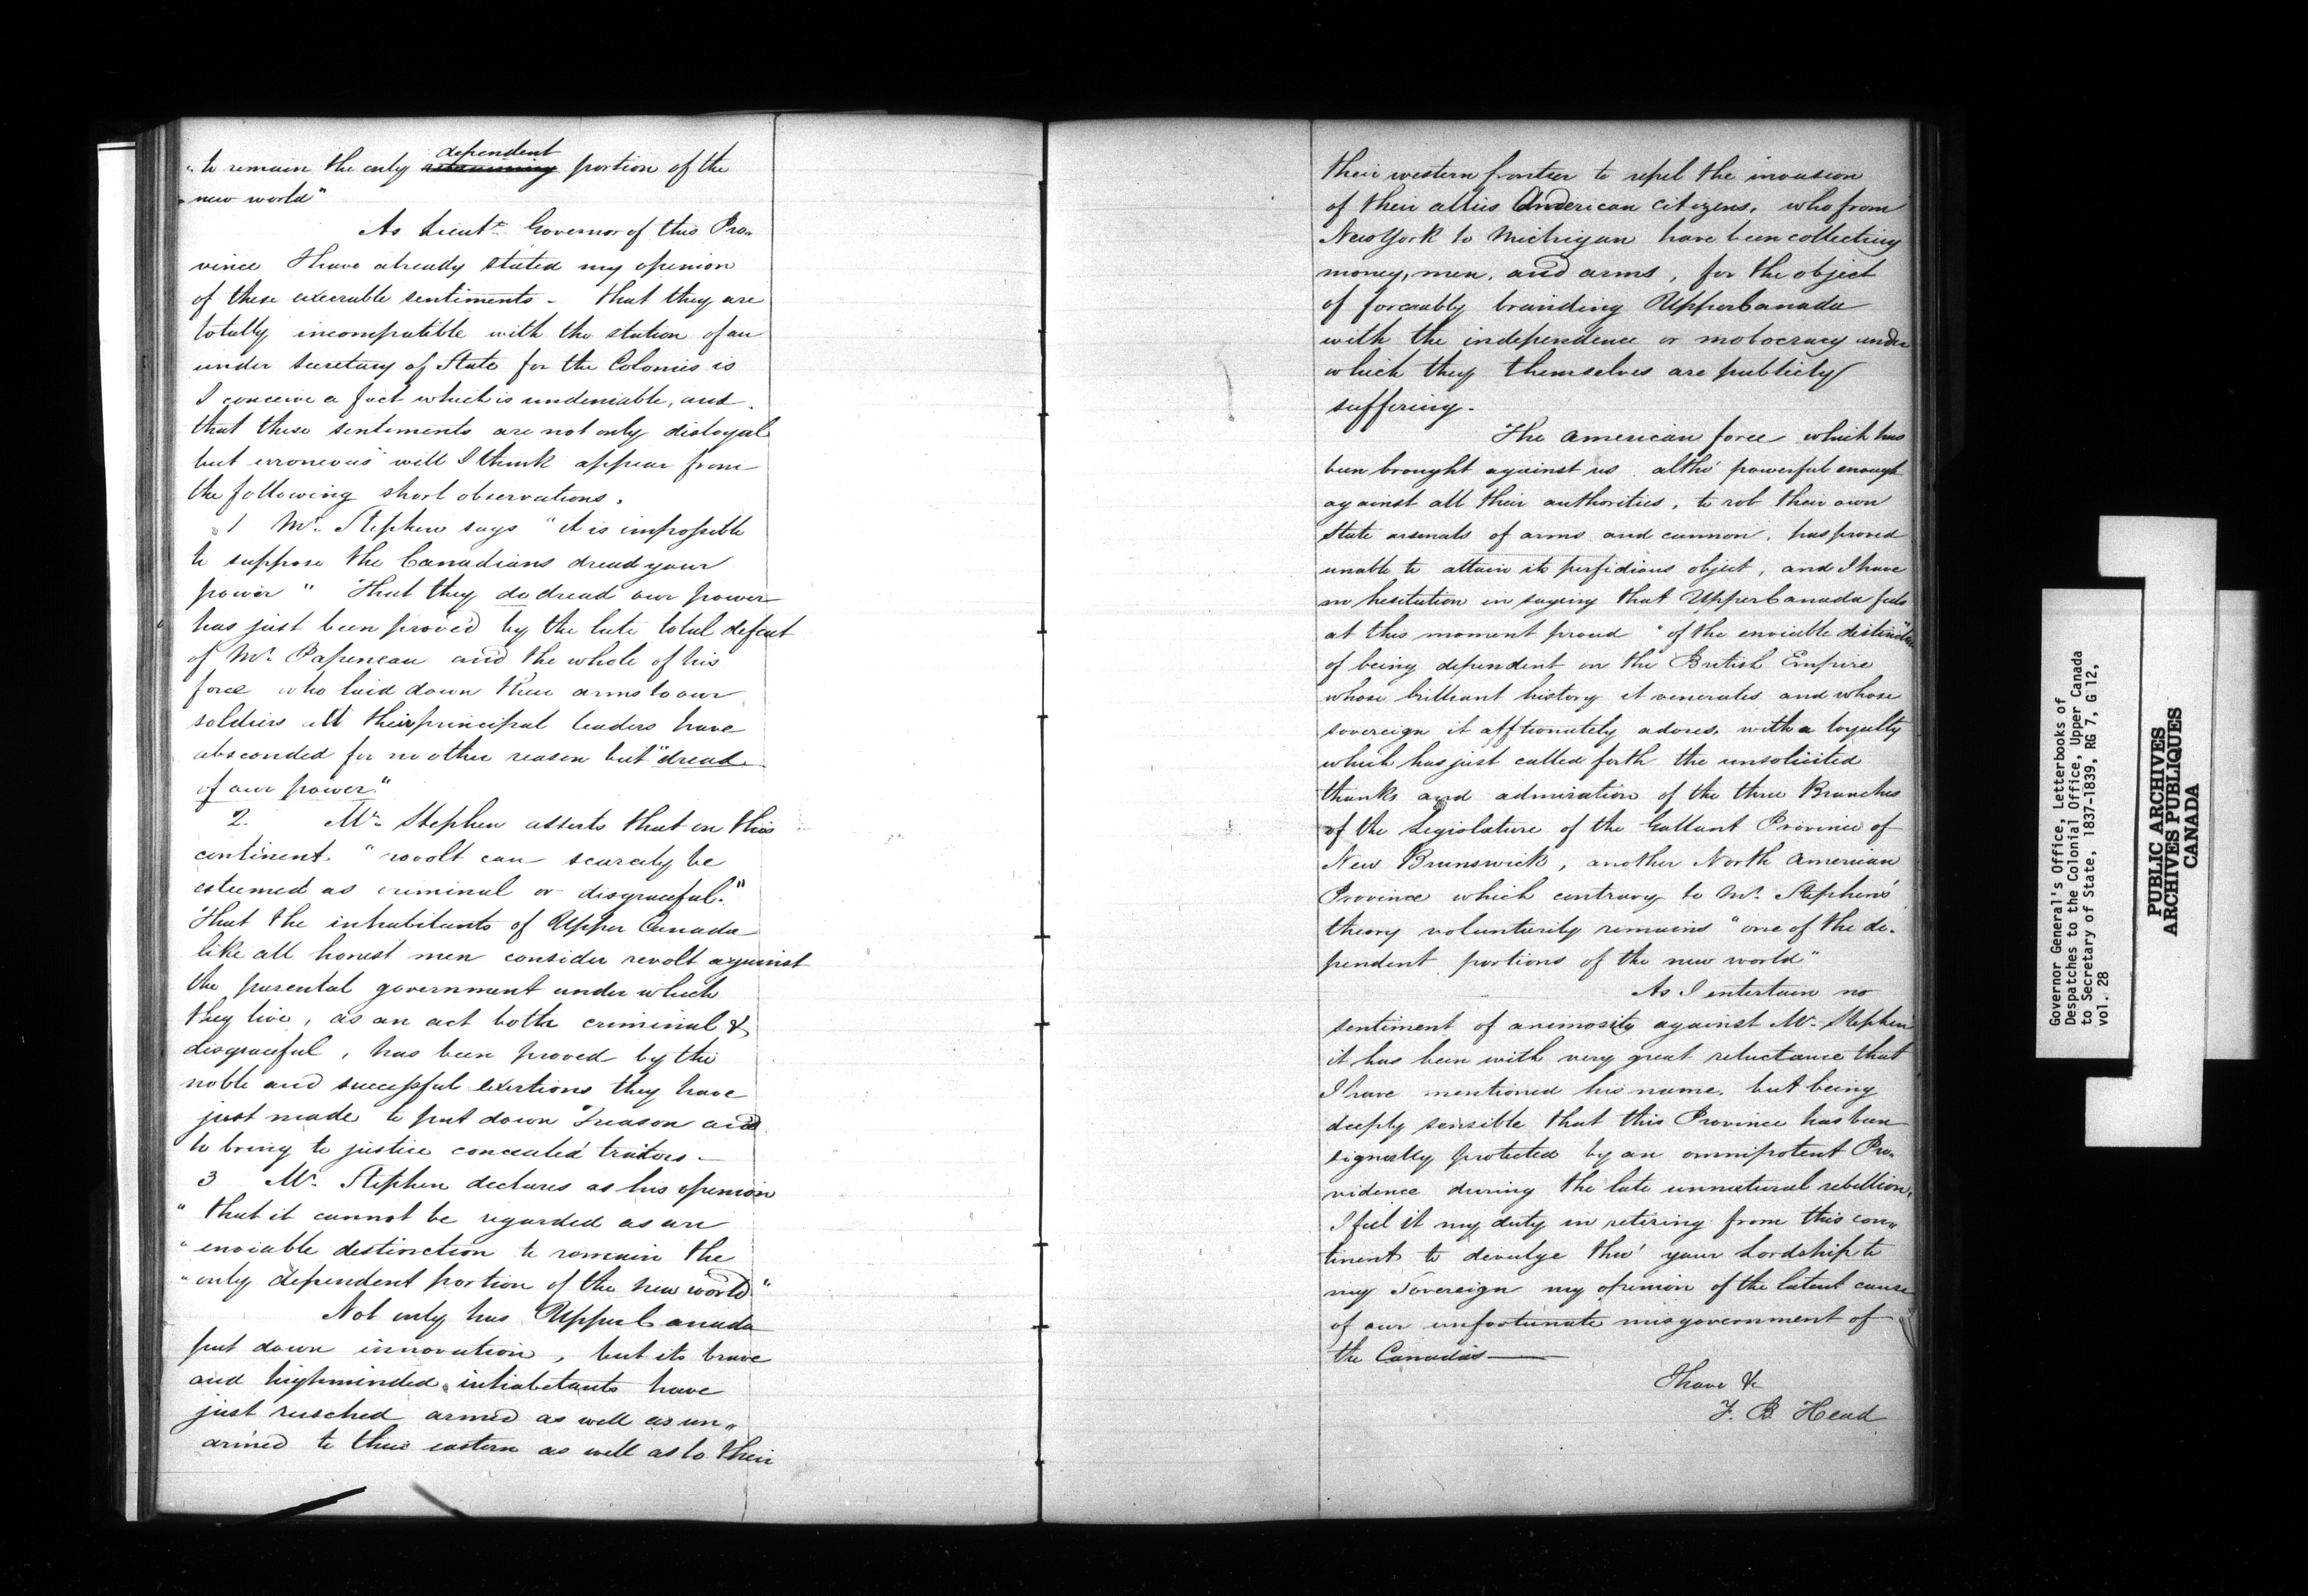 " to remain the only remaining dependent portion of the
" new world"
As Lieut. Governor of this Pro„
vince I have already stated my opinion
of these execrable sentiments - that they are
totally incompatible with the station of an
under secretary of State for the Colonies is
I conceive a fact which is undeniable, and
that these sentiments are not only disloyal
but erroneous will I think appear from
the following short observations.
1 Mr. Stephen says "it is impossible
to suppose the Canadians dread your
power" That they do dread our power
has just been proved by the late total defeat
of Mr. Papeneau and the whole of his
force who laid down their arms to our
soldiers all their principal leaders have
absconded for no other reason but "dread
of our power."
2. Mr. Stephen asserts that on this
continent "revolt can scarcely be
esteemed as criminal or disgraceful."
That the inhabitants of Upper Canada
like all honest men consider revolt against
the parental government under which
they live, as an act both criminal &
disgraceful, has been proved by the
noble and successful exertions they have
just made to put down Treason and
to bring to justice concealed traitors.—
3 Mr. Stephen declares as his opinion
" that it cannot be regarded as an
" enviable distinction to remain the
" only dependent portion of the new world"
Not only has Upper Canada
put down innovation, but its brave
and highminded inhabitants have
just rusched armed as well as un„
armed to their eastern as well as to their
their western frontier to repel the invasion
of their allies American citizens, who from
New York to Michigan have been collecting
money, men, and arms, for the object
of forceably branding Upper Canada
with the independence or mobocracy under
which they themselves are publicly
suffering.
The American force which has
been brought against us altho' powerful enough
against all their authorities, to rob their own
State arsenals of arms and cannon, has proved
unable to attain its perfidious object, and I have
no hesitation in saying that Upper Canada feels
at this moment proud "of the enviable distinction"
of being dependent on the British Empire
whose brilliant history it venerates and whose
sovereign it afftionately adores, with a loyalty
which has just called forth the unsolicited
thanks and admiration of the three Branches
of the Legislature of the Gallant Province of
New Brunswick, another North American
Province which contrary to Mr. Stephen's
theory voluntarily remains "one of the de-
pendent portions of the new world"
As I entertain no
sentiment of animosity against Mr. Stephen
it has been with very great reluctance that
I have mentioned his name, but being
deeply sensible that this Province has been
signally protected by an omnipotent Pro„
vidence during the late unnatural rebellion,
I feel it my duty in retiring from this con„
tinent to devulge thro' your Lordship to
my Sovereign my opinion of the latent cause
of our unfortunate misgovernment of
the Canadas —
I have &c
F. B. Head
Governor General's Office, Letterbooks of
Despatches to the Colonial Office, Upper Canada
to Secretary of State, 1837-1839, RG 7, G 12,
vol. 28
PUBLIC ARCHIVES
ARCHIVES PUBLIQUES
CANADA